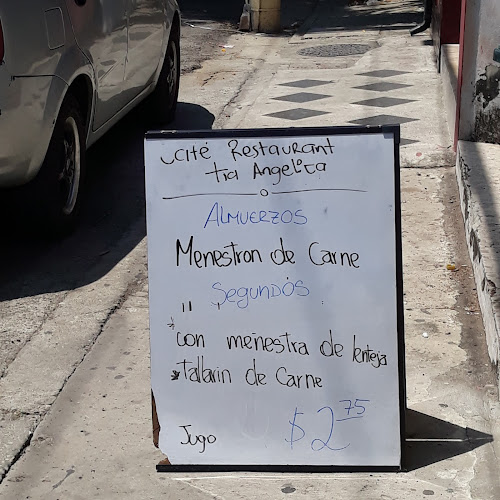 Café Restaurant
tia Angelita
Almuerzos
Menestron de Carne
Segundos
con menestra de lenteja
* tallarin de Carne
Jugo $2.75